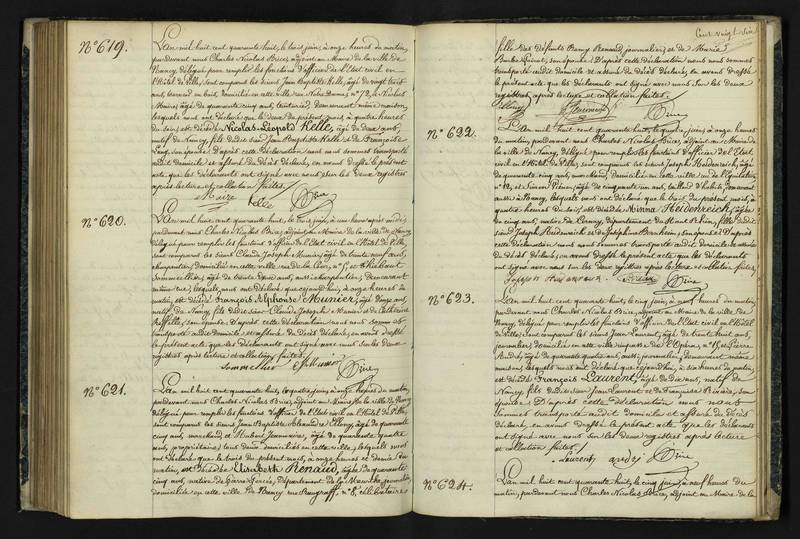 N° 619.
L'an mil huit cent quarante huit, le trois juin, à onze heures du matin,
pardevant nous Charles Nicolas Brice, adjoint au Maire de la ville de
Nancy, délégué pour remplir les fonctions d'officier de l'Etat civil en
l'Hôtel de Ville, sont comparus les sieurs Jean Baptiste Kelle, âgé de vingt huit
ans, domicilié en cette ville rue Notre Dame, n° 72, et Nicolas
âgé de quarante cinq ans, demeurant même maison,
lesquels nous ont déclaré que le deux du présent mois, à quatre heures
du soir, est décédé Nicolas-Léopold Kelle, âgé de deux ans,
natif de Nancy, fils dudit sieur Jean Baptiste Kelle et de Françoise
son épouse. D'après cette déclaration nous nous sommes transporté
audit domicile et assuré du décès déclaré, en avons dressé le présent
acte que les déclarants ont signé avec nous sur les deux registres
après lecture et collation faites.
Kelle Brice
N° 620.
L'an mil huit cent quarante huit, le trois juin, à une heure après midi,
pardevant nous Charles Nicolas Brice, adjoint au Maire de la ville de Nancy,
délégué pour remplir les fonctions d'officier de l'Etat civil en l'Hôtel de Ville,
sont comparus les sieurs Claude Joseph Munier, âgé de trente ans,
charpentier, domicilié en cette ville rue n° 5, et Thiébaut
ans, aussi charpentier, demeurant
même rue, lesquels nous ont déclaré que cejourd'hui, à onze heures du
matin, est décédé François Alphonse Munier, âgé ans,
natif de Nancy, fils dudit sieur Claude Joseph Munier et de Catherine
son épouse. D'après cette déclaration nous nous sommes
transporté audit domicile et assuré du décès déclaré, en avons dressé
le présent acte que les déclarants ont signé avec nous sur les deux
registres après lecture et collation faites.
Munier Brice
N° 621.
L'an mil huit cent quarante huit, le quatre juin, à onze heures du matin,
pardevant nous Charles Nicolas Brice, adjoint au Maire de la ville de Nancy,
délégué pour remplir les fonctions d'officier de l'Etat civil en l'Hôtel de Ville,
sont comparus les sieurs Jean Baptiste Alexandre âgé de quarante
cinq ans, marchand, et Hubert Jeannaire, âgé de quarante quatre
ans, propriétaire, tous deux domiciliés en cette ville, lesquels nous
ont déclaré que le trois du présent mois, à onze heures et demie du
matin, est décédée Elisabeth Renaud, âgée de quarante
cinq ans, native de Département de la Meurthe, journalière,
domiciliée en cette ville de Nancy rue n° 8, célibataire
Cent vingt six
fille des défunts Remy Renaud, journalier, et de Marie
son épouse. D'après cette déclaration nous nous sommes
transporté audit domicile et assuré du décès déclaré, en avons dressé
le présent acte que les déclarants ont signé avec nous sur les deux
registres après lecture et collation faites.
Brice
N° 622.
L'an mil huit cent quarante huit, le quatre juin, à onze heures du
matin, pardevant nous Charles Nicolas Brice, adjoint au Maire de
la ville de Nancy, délégué pour remplir les fonctions d'officier de l'Etat
civil en l'Hôtel de Ville, sont comparus les sieurs Joseph Heidenreich, âgé
de quarante cinq ans, marchand, domicilié en cette ville rue de l'Equitation
n° 12, et Simon âgé de cinquante un ans, tailleur d'habits, demeurant
aussi à Nancy, lesquels nous ont déclaré que le trois du présent mois, à
quatre heures du soir, est décédée Mirna Heidenreich, âgée
de cinq ans, native de Nancy, département de la Meurthe, fille dudit
sieur Joseph Heidenreich et de Joséphine Bernheim, son épouse. D'après
cette déclaration nous nous sommes transporté audit domicile et assuré
du décès déclaré, en avons dressé le présent acte que les déclarants
ont signé avec nous sur les deux registres après lecture et collation faites.
Brice
N° 623.
L'an mil huit cent quarante huit, le cinq juin, à neuf heures du matin,
pardevant nous Charles Nicolas Brice, adjoint au Maire de la ville de
Nancy, délégué pour remplir les fonctions d'officier de l'Etat civil en l'Hôtel
de Ville, sont comparus les sieurs Jean Laurent, âgé de trente huit ans,
journalier, domicilié en cette ville impasse de l'Opéra, n° 15, et Pierre
André, âgé de quarante quatre ans, aussi journalier, demeurant même
maison, lesquels nous ont déclaré que cejourd'hui, à six heures du matin,
est décédé François Laurent, âgé de dix ans, natif de
Nancy, fils dudit sieur Jean Laurent et de Françoise son
épouse. D'après cette déclaration nous nous
sommes transporté audit domicile et assuré du décès
déclaré, en avons dressé le présent acte que les déclarants
ont signé avec nous sur les deux registres après lecture
et collation faites.
Laurent andré Brice
N° 624.
L'an mil huit cent quarante huit, le cinq juin, à neuf heures du
matin, pardevant nous Charles Nicolas Brice, adjoint au Maire de la